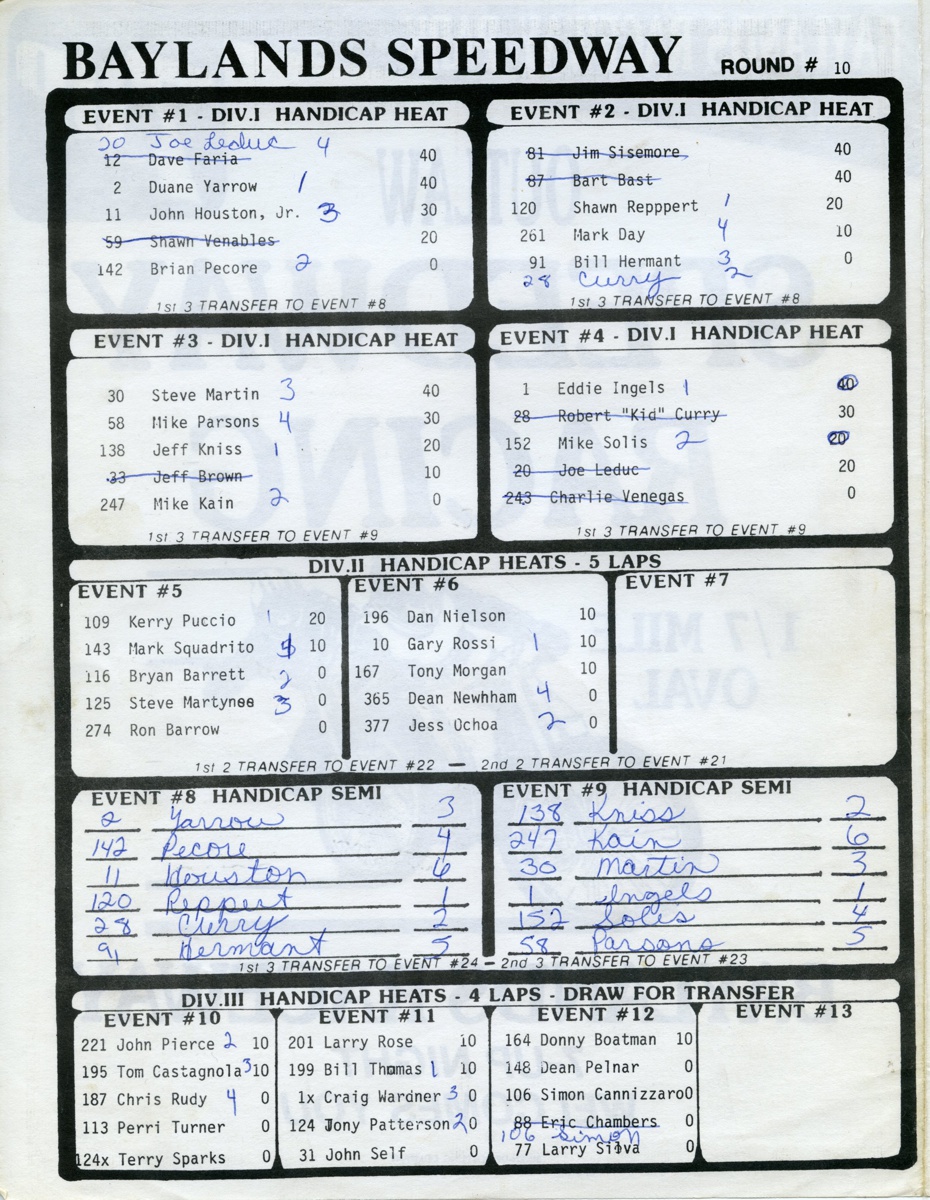 BAYLANDS SPEEDWAY ROUND # 10
EVENT #1 - DIV.I HANDICAP HEAT
20 Joe Leduc 4
12 Dave Faria 40
2 Duane Yarrow 1 40
11 John Houston, Jr. 3 30
59 Shawn Venables 20
142 Brian Pecore 2 0
1st 3 TRANSFER TO EVENT #8
EVENT #2 - DIV.I HANDICAP HEAT
81 Jim Sisemore 40
87 Bart Bast 40
120 Shawn Repppert 1 20
261 Mark Day 4 10
91 Bill Hermant 3 0
28 Curry 2
1st 3 TRANSFER TO EVENT #8
EVENT #3 - DIV.I HANDICAP HEAT
30 Steve Martin 3 40
58 Mike Parsons 4 30
138 Jeff Kniss 1 20
33 Jeff Brown 10
247 Mike Kain 2 0
1st 3 TRANSFER TO EVENT #9
EVENT #4 - DIV.I HANDICAP HEAT
1 Eddie Ingels 1 40
28 Robert "Kid" Curry 30
152 Mike Solis 2 20
20 Joe Leduc 20
243 Charlie Venegas 0
1st 3 TRANSFER TO EVENT #9
DIV.II HANDICAP HEATS - 5 LAPS
EVENT #5
109 Kerry Puccio 1 20
143 Mark Squadrito 10
116 Bryan Barrett 2 0
125 Steve Martynse 3 0
274 Ron Barrow 0
EVENT #6
196 Dan Nielson 10
10 Gary Rossi 1 10
167 Tony Morgan 10
365 Dean Newhham 4 0
377 Jess Ochoa 2 0
EVENT #7
1st 2 TRANSFER TO EVENT #22 — 2nd 2 TRANSFER TO EVENT #21
EVENT #8 HANDICAP SEMI
2 Yarrow 3
142 Pecore 4
11 Houston 6
120 Reppert 1
28 Curry 2
91 Hermant 5
EVENT #9 HANDICAP SEMI
138 Kniss 2
247 Kain 6
30 Martin 3
1 Ingels 1
152 Solis 4
58 Parsons 5
1st 3 TRANSFER TO EVENT #24 – 2nd 3 TRANSFER TO EVENT #23
DIV.III HANDICAP HEATS - 4 LAPS - DRAW FOR TRANSFER
EVENT #10
221 John Pierce 2 10
195 Tom Castagnola 3 10
187 Chris Rudy 4 0
113 Perri Turner 0
124x Terry Sparks 0
EVENT #11
201 Larry Rose 10
199 Bill Thomas 1 10
1x Craig Wardner 3 0
124 Jony Patterson 2 0
31 John Self 0
EVENT #12
164 Donny Boatman 10
148 Dean Pelnar 0
106 Simon Cannizzaro 0
88 Eric Chambers 0
106 Simon
77 Larry Silva 0
EVENT #13